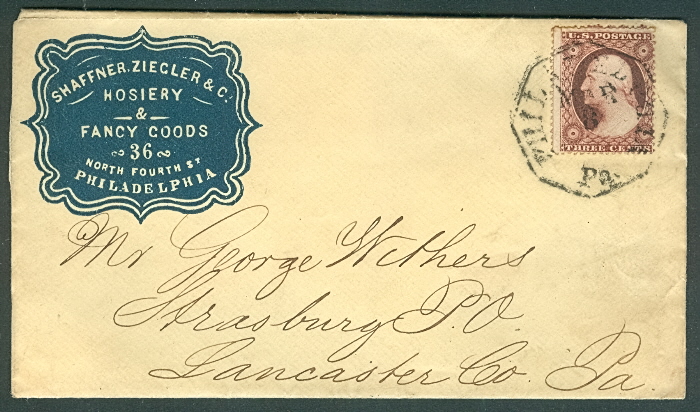 SHAFFNER, ZIEGLER & C.
HOSIERY
&
FANCY GOODS
36
NORTH FOURTH ST
PHILADELPHIA
U.S. POSTAGE
THREE CENTS
PHILADELPHIA
MAR
Pa.
Mr George Withers
Strasburg P.O.
Lancaster Co. Pa.